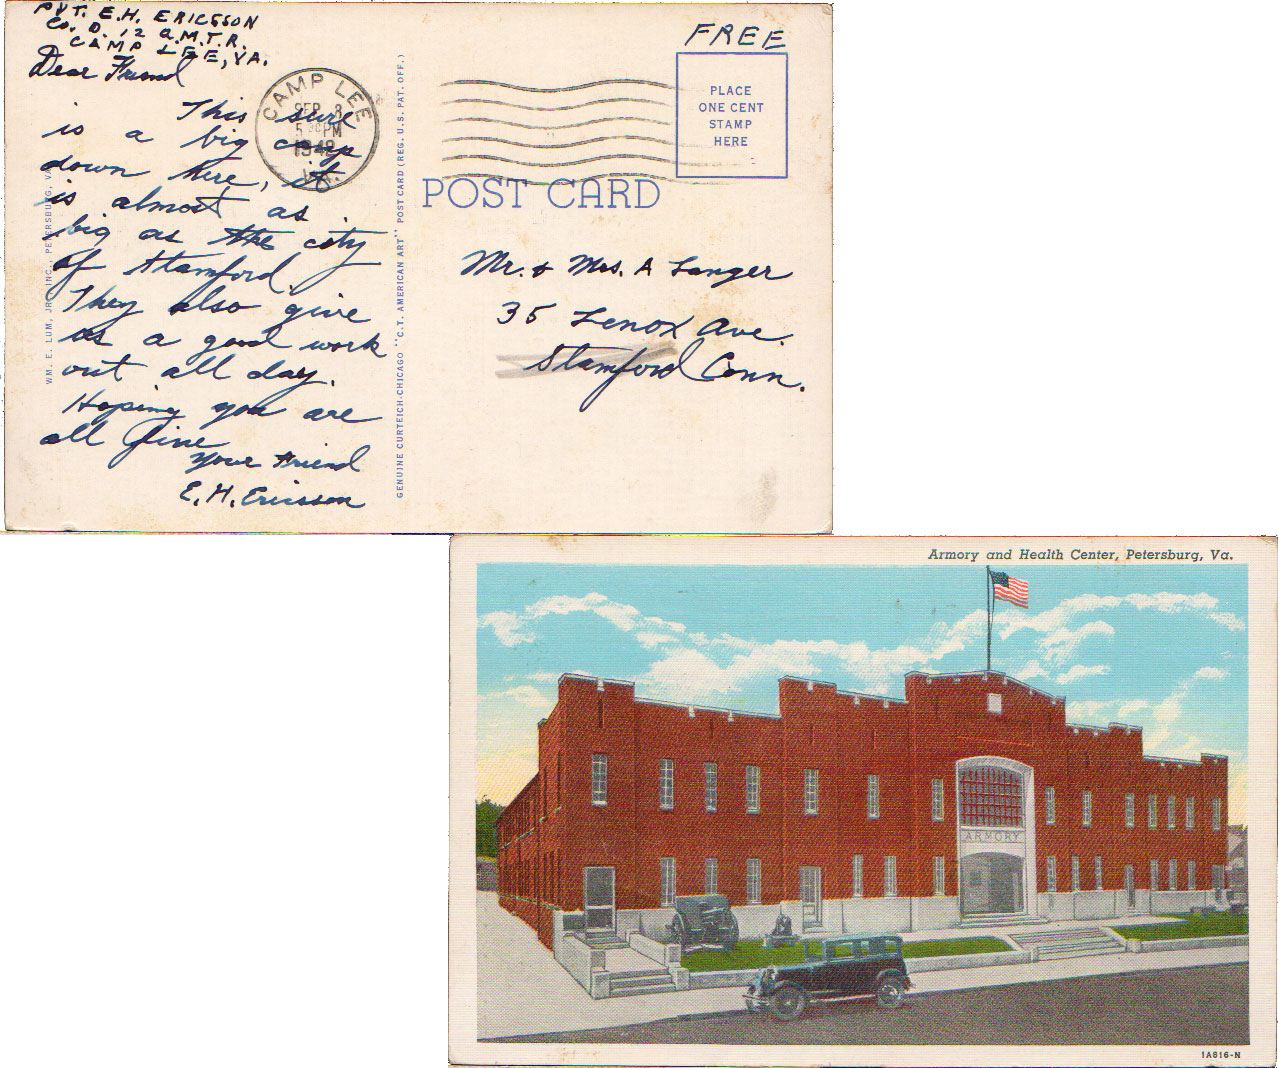 PVT. E.H. ERICSSON
CO. D. 12 Q.M.T.R.
CAMP LEE, VA.
Dear Friend
This sure
is a big camp
down here, it
is almost as
big as the city
of Stamford.
They also give
us a good work
out all day.
Hoping you are
all fine
Your Friend
E. H. Ericsson
CAMP LEE
SEP 3
5 30 PM
1942
VA.
WM. E. LUM, JR., INC., PETERSBURG, VA.
GENUINE CURTEICH-CHICAGO "C.T. AMERICAN ART" POST CARD (REG. U.S. PAT. OFF.)
FREE
PLACE
ONE CENT
STAMP
HERE
POST CARD
Mr. & Mrs. A Langer
35 Lenox Ave.
Stamford Conn.
Armory and Health Center, Petersburg, Va.
ARMORY
1A816-N